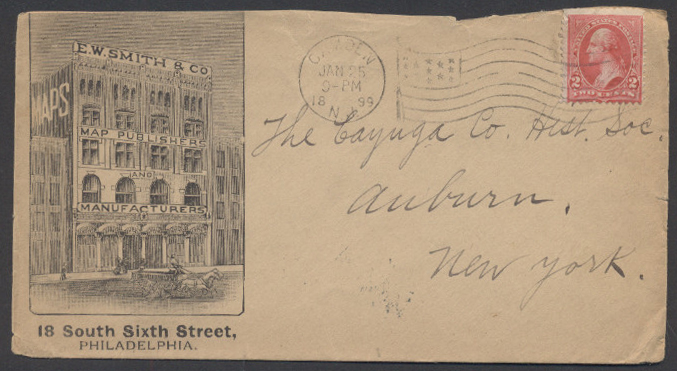 E.W. SMITH & CO
MAPS
MAP PUBLISHERS
AND
MANUFACTURERS
18 South Sixth Street,
PHILADELPHIA.
CAMDEN
JAN 25
9-PM
18 99
N.J.
2 2
TWO CENTS
The Cayuga Co. Hist. Soc.
Auburn,
New York.